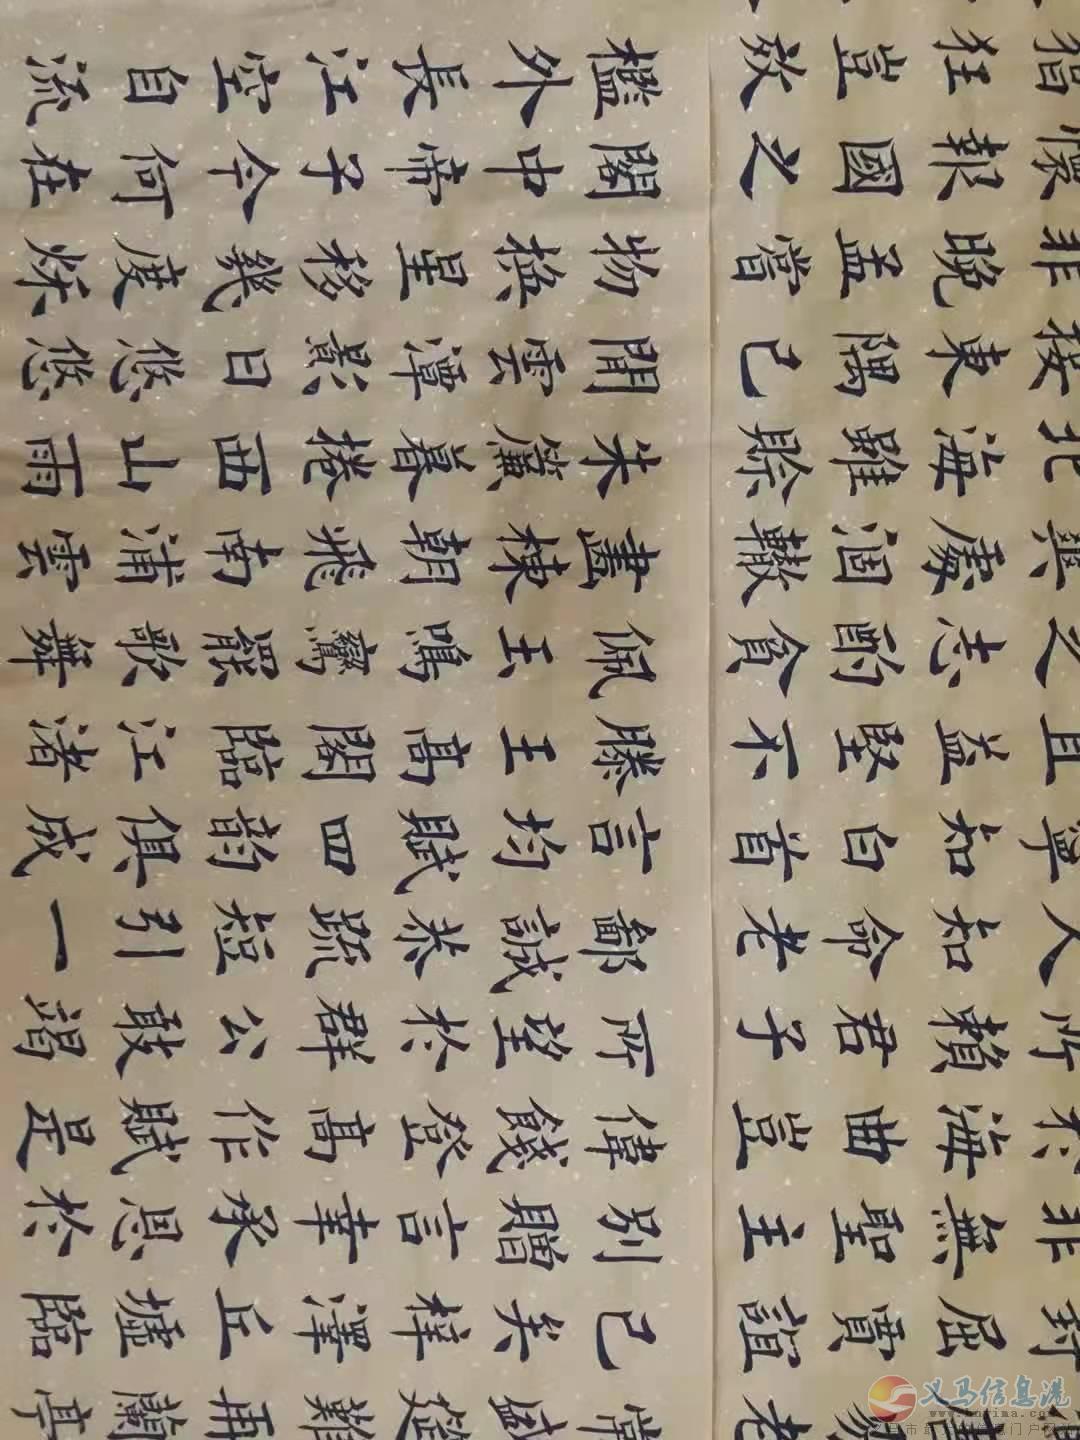 易老
封屈賈誼
非無聖主
於海曲豈
所賴君子
人知命老
寧知白首
且益堅不
之志酌貪
爽處涸轍
北海雖賒
接東隅已
非晚孟嘗
懷報國之
猖狂豈效
常盛筵難再蘭亭
已矣梓澤丘墟臨
別贈言幸承恩於
偉餞登高作賦是
所望於群公敢竭
鄙誠恭疏短引一
言均賦四韻俱成
滕王高閣臨江渚
佩玉鳴鸞罷歌舞
畫棟朝飛南浦雲
朱簾暮捲西山雨
閒雲潭影日悠悠
物換星移幾度秋
閣中帝子今何在
檻外長江空自流
义马信息港
www.hnyima.com